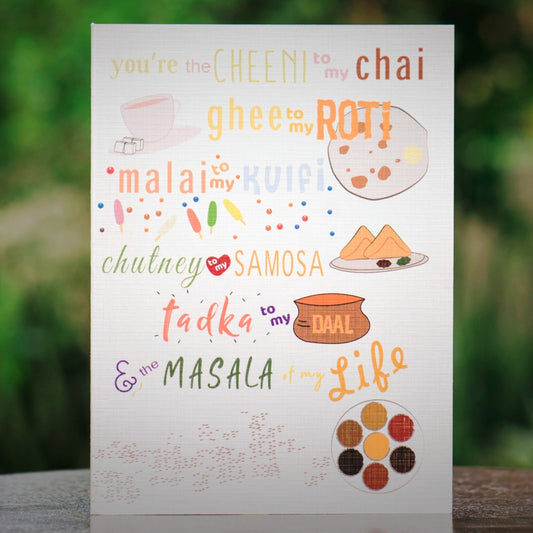 you're the CHEENI to my chai
ghee to my ROTI
malai to my KULFI
chutney to my SAMOSA
tadka to my DAAL
& the MASALA of my Life